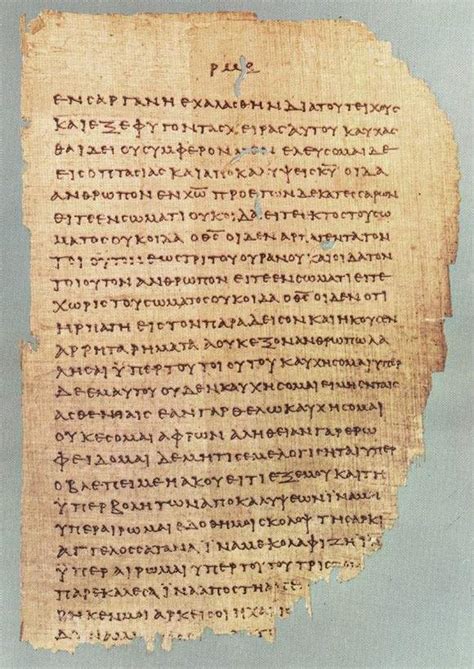 ΕΝΣΑΡΓΑΝΗΕΧΑΛΑΣΘΗΝΔΙΑΤΟΥΤΕΙΧΟΥΣ
ΚΑΙΕΞΕΦΥΓΟΝΤΑΣΧΕΙΡΑΣΑΥΤΟΥΚΑΥΧΑΣ
ΘΑΙΔΕΙΟΥΣΥΜΦΕΡΟΝΜΕΝΕΛΕΥΣΟΜΑΙΔΕ
ΕΙΣΟΠΤΑΣΙΑΣΚΑΙΑΠΟΚΑΛΥΨΕΙΣΚ̅Υ̅ΟΙΔΑ
ΑΝΘΡΩΠΟΝΕΝΧ̅Ω̅ΠΡΟΕΤΩΝΔΕΚΑΤΕΣΣΑΡΩΝ
ΕΙΤΕΕΝΣΩΜΑΤΙΟΥΚΟΙΔΑΕΙΤΕΕΚΤΟΣΤΟΥΣΩ
ΜΑΤΟΣΟΥΚΟΙΔΑΟΘ̅Σ̅ΟΙΔΕΝΑΡΠΑΓΕΝΤΑΤΟΝ
ΤΟΙΟΥΤΟΝΕΩΣΤΡΙΤΟΥΟΥΡΑΝΟΥΚΑΙΟΙΔΑΤΟΝ
ΤΟΙΟΥΤΟΝΑΝΘΡΩΠΟΝΕΙΤΕΕΝΣΩΜΑΤΙΕΙΤΕ
ΧΩΡΙΣΤΟΥΣΩΜΑΤΟΣΟΥΚΟΙΔΑΟΘ̅Σ̅ΟΙΔΕΝΟΤΙ
ΗΡΠΑΓΗΕΙΣΤΟΝΠΑΡΑΔΕΙΣΟΝΚΑΙΗΚΟΥΣΕΝ
ΑΡΡΗΤΑΡΗΜΑΤΑΑΟΥΚΕΞΟΝΑΝΘΡΩΠΩΛΑ
ΛΗΣΑΙΥΠΕΡΤΟΥΤΟΙΟΥΤΟΥΚΑΥΧΗΣΟΜΑΙΥΠΕΡ
ΔΕΕΜΑΥΤΟΥΟΥΔΕΝΚΑΥΧΗΣΟΜΑΙΕΙΜΗΕΝΤΑΙΣ
ΑΣΘΕΝΙΑΙΣΕΑΝΓΑΡΘΕΛΩΚΑΥΧΗΣΟΜΑΙ
ΟΥΚΕΣΟΜΑΙΑΦΡΩΝΑΛΗΘΕΙΑΝΓΑΡΕΡΩ
ΦΕΙΔΟΜΑΙΔΕΜΗΤΙΣΕΜΕΛΟΓΙΣΗΤΑΙΥΠΕΡ
ΟΒΛΕΠΕΙΜΕΗΑΚΟΥΕΙΤΙΕΞΕΜΟΥΚΑΙΤΗ
ΫΠΕΡΒΟΛΗΤΩΝΑΠΟΚΑΛΥΨΕΩΝΪΝΑΜΗ
ΥΠΕΡΑΙΡΩΜΑΙΕΔΟΘΗΜΟΙΣΚΟΛΟΨΤΗΣΑΡΚΙ
ΑΓΓΕΛΟΣΣΑΤΑΝΑΪΝΑΜΕΚΟΛΑΦΙΖΗΪ
ΫΠΕΡΑΙΡΩΜΑΙΥΠΕΡΤΟΥΤΟΥΤΡΙΣ
ΠΑΡΕΚΑΛΕΣΑΪΝΑΑΠΟΣΤΗ
ΡΗΚΕΝΜΟΙΑΡΚΕΙΣΟΙΗΧΑΡΙΣ
ΔΥΝΑΜ